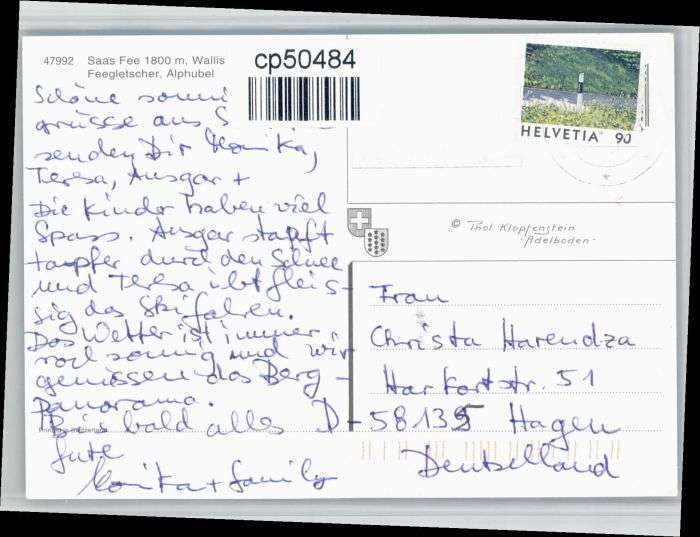 47992 Saas Fee 1800 m, Wallis
Feegletscher, Alphubel
cp50484
HELVETIA 90
Schöne sonni
grüsse aus S
senden Dir Monika,
Teresa, Ansgar +
Die Kinder haben viel
Spass. Ansgar stapft
tapfer durch den Schnee
und Teresa übt fleis-
sig das Skifahren.
Das Wetter ist immer
noch sonnig und wir
geniessen das Berg-
panorama.
Bis bald alles
Gute
Monika + family
© Phot. Klopfenstein
Adelboden
Frau
Christa Harendza
Harkortstr. 51
D-58135 Hagen
Deutschland